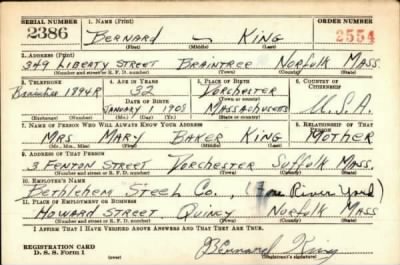 SERIAL NUMBER 1. NAME (Print) ORDER NUMBER
2386 BERNARD — KING 2554
(First) (Middle) (Last)
2. ADDRESS (Print)
349 LIBERTY STREET BRAINTREE NORFOLK MASS.
(Number and street or R. F. D. number) (Town) (County) (State)
3. TELEPHONE 4. AGE IN YEARS 5. PLACE OF BIRTH 6. COUNTRY OF CITIZENSHIP
Braintree 1894R 32 DORCHESTER
DATE OF BIRTH (Town or county)
JANUARY 1 1908 MASSACHUSETTS U.S.A.
(Exchange) (Number) (Mo.) (Day) (Yr.) (State or country)
7. NAME OF PERSON WHO WILL ALWAYS KNOW YOUR ADDRESS 8. RELATIONSHIP OF THAT PERSON
MRS MARY BAKER KING MOTHER
(Mr., Mrs., Miss) (First) (Middle) (Last)
9. ADDRESS OF THAT PERSON
3 FENTON STREET DORCHESTER SUFFOLK MASS.
(Number and street or R. F. D. number) (Town) (County) (State)
10. EMPLOYER'S NAME
BETHLEHEM STEEL CO., (Fore River Yard)
11. PLACE OF EMPLOYMENT OR BUSINESS
HOWARD STREET QUINCY NORFOLK MASS
(Number and street or R. F. D. number) (Town) (County) (State)
I AFFIRM THAT I HAVE VERIFIED ABOVE ANSWERS AND THAT THEY ARE TRUE.
REGISTRATION CARD
D. S. S. Form 1
Bernard King
(Registrant's signature)